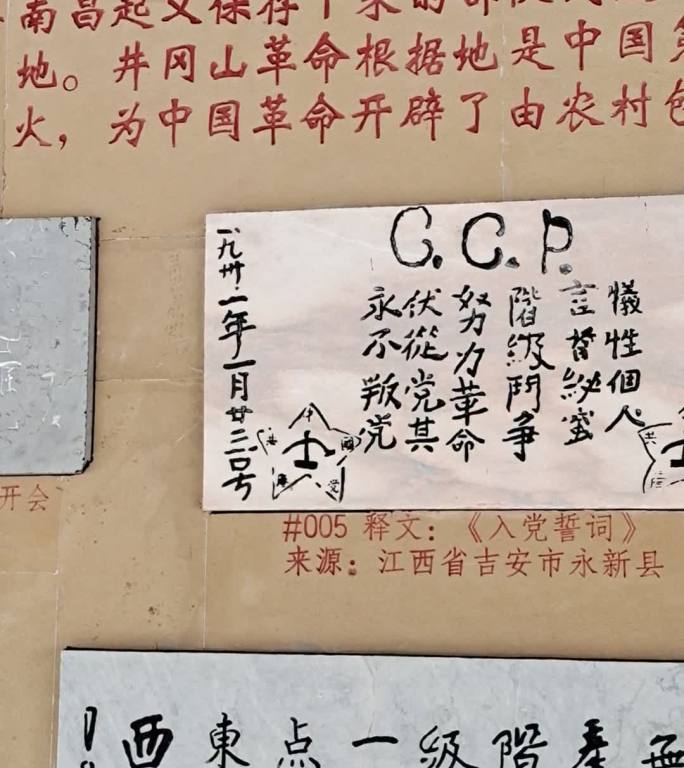 南昌起义保存下来的部
地。井冈山革命根据地是中国第
火，为中国革命开辟了由农村包
C.C.P.
犧性個人
言首秘蜜
階級鬥争
努力革命
伏從党其
永不叛党
一九卅一年一月廿三〇号
中國党
共
开会
#005 释文：《入党誓词》
来源：江西省吉安市永新县
西東点一級階無